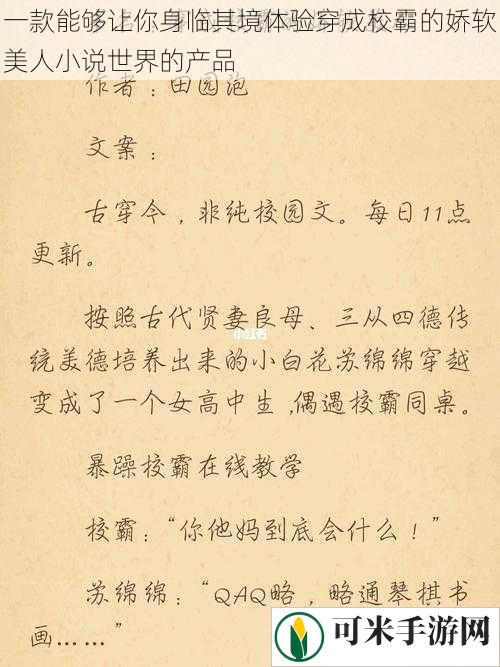 一款能够让你身临其境体验穿成校霸的娇软
美人小说世界的产品
作者：田园泡
文案：
古穿今，非纯校园文。每日11点
更新。
按照古代贤妻良母、三从四德传
统美德培养出来的小白花苏绵绵穿越
变成了一个女高中生,偶遇校霸同桌。
小红书
暴躁校霸在线教学
校霸：“你他妈到底会什么！”
苏绵绵：“QAQ略，略通琴棋书
画……”
可米手游网